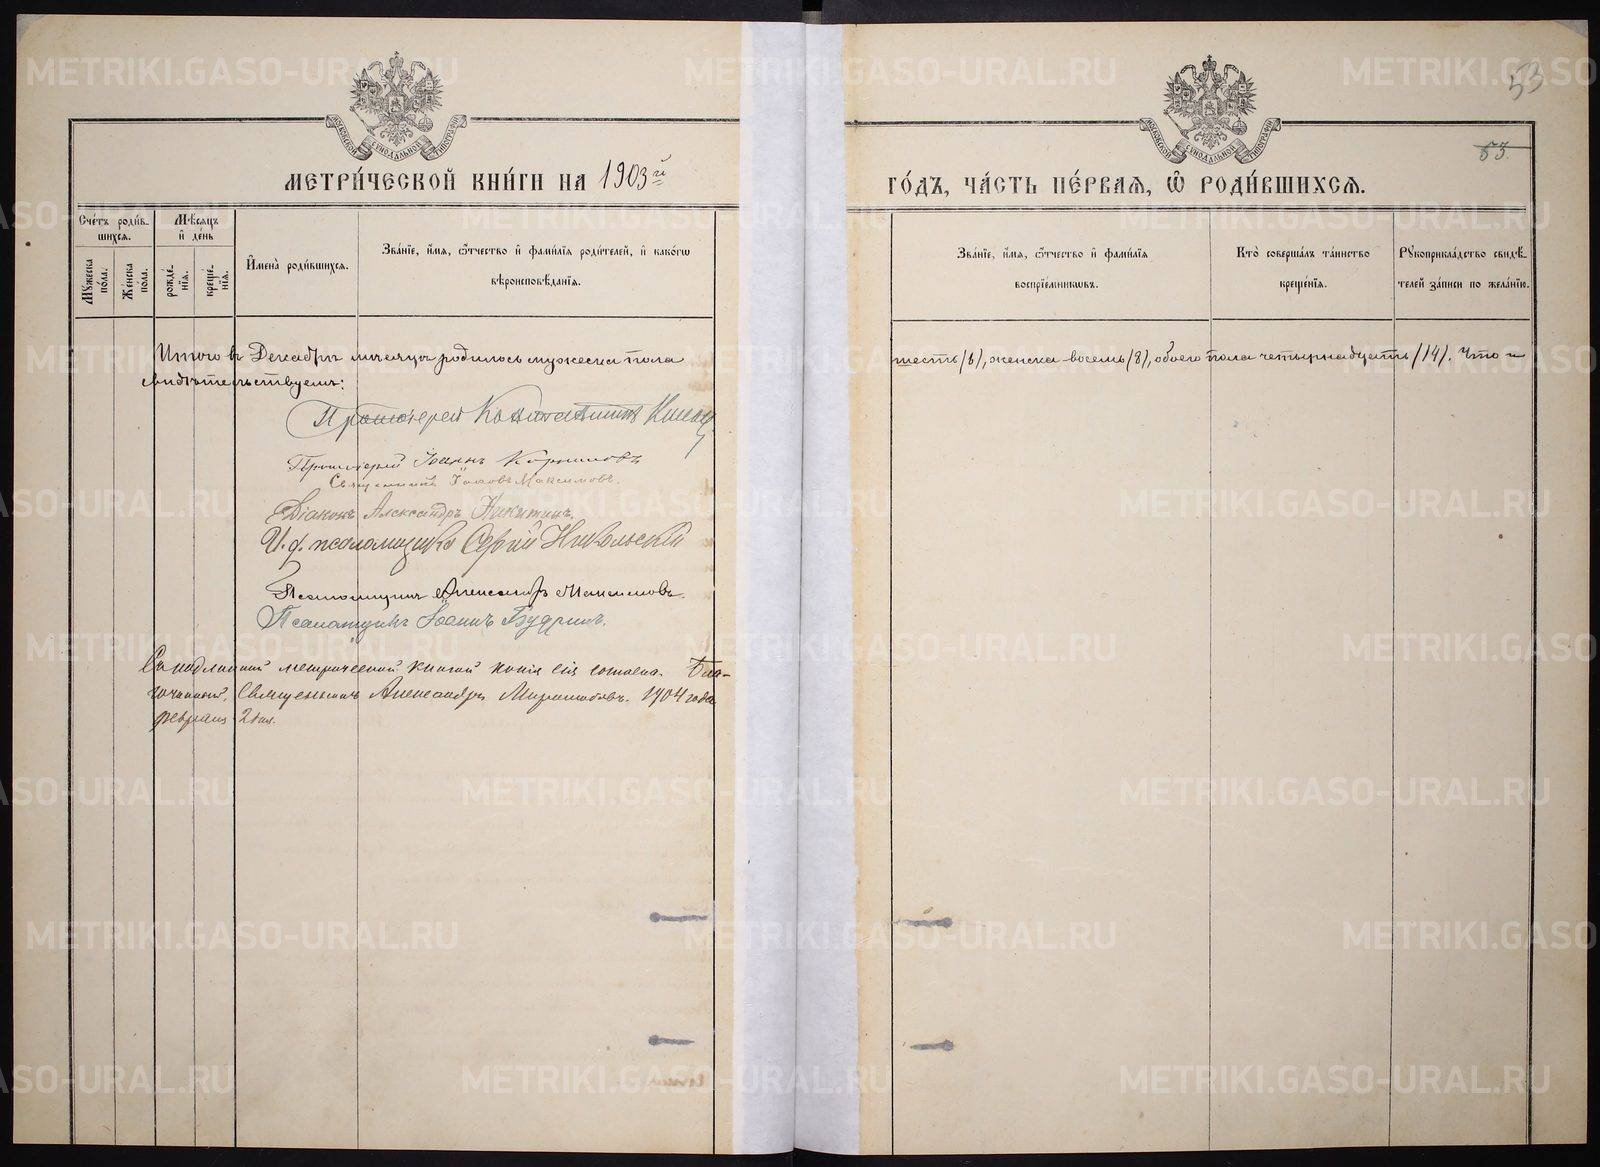 53
53.
МОСКОВСКОЙ СѴНОДАЛЬНОЙ ТИПОГРАФІИ
МОСКОВСКОЙ СѴНОДАЛЬНОЙ ТИПОГРАФІИ
МЕТРИ́ЧЕСКОЙ КНИ́ГИ НА 1903й
ГО́ДЪ, ЧА́СТЬ ПЕ́РВАѦ, Ѡ҆ РОДИ́ВШИХСѦ.
Сче́тъ роди́в-
шихсѧ.
Мѣ́сѧцъ
и҆ де́нь
Мꙋ́жеска по́ла.
Же́нска по́ла.
рожде́-
нїѧ.
креще́-
нїѧ.
И҆мена̀ роди́вшихсѧ.
Зва́нїе, и҆́мѧ, ѻ҆́тчество и҆ фами́лїѧ роди́телей, и҆ како́гѡ
вѣроисповѣ́данїѧ.
Зва́нїе, и҆́мѧ, ѻ҆́тчество и҆ фами́лїѧ
воспрїе́мникѡвъ.
Кто̀ соверша́лъ та́инство
креще́нїѧ.
Рꙋкоприкла́дство свидѣ́-
телей за́писи по жела́нїю.
Итого въ Декабрѣ мѣсяцѣ родилось мужеска пола
шесть /6/, женска восемь /8/, обоего пола четырнадцать /14/. Что и
свидѣтельствуемъ:
Протоіерей Константинъ
Протоіерей Іоаннъ Корниловъ
Священникъ Іаковъ Максимовъ.
Діаконъ Александръ Никитинъ.
И. д. псаломщика Сергій Никольскій
Псаломщикъ Александръ Максимовъ.
Псаломщикъ Іоаннъ Будринъ.
Съ подлинной метрической книгой копія сія согласна. Бла-
гочинный, Священникъ Александръ 1904 года
февраля 2 дня.
METRIKI.GASO-URAL.RU